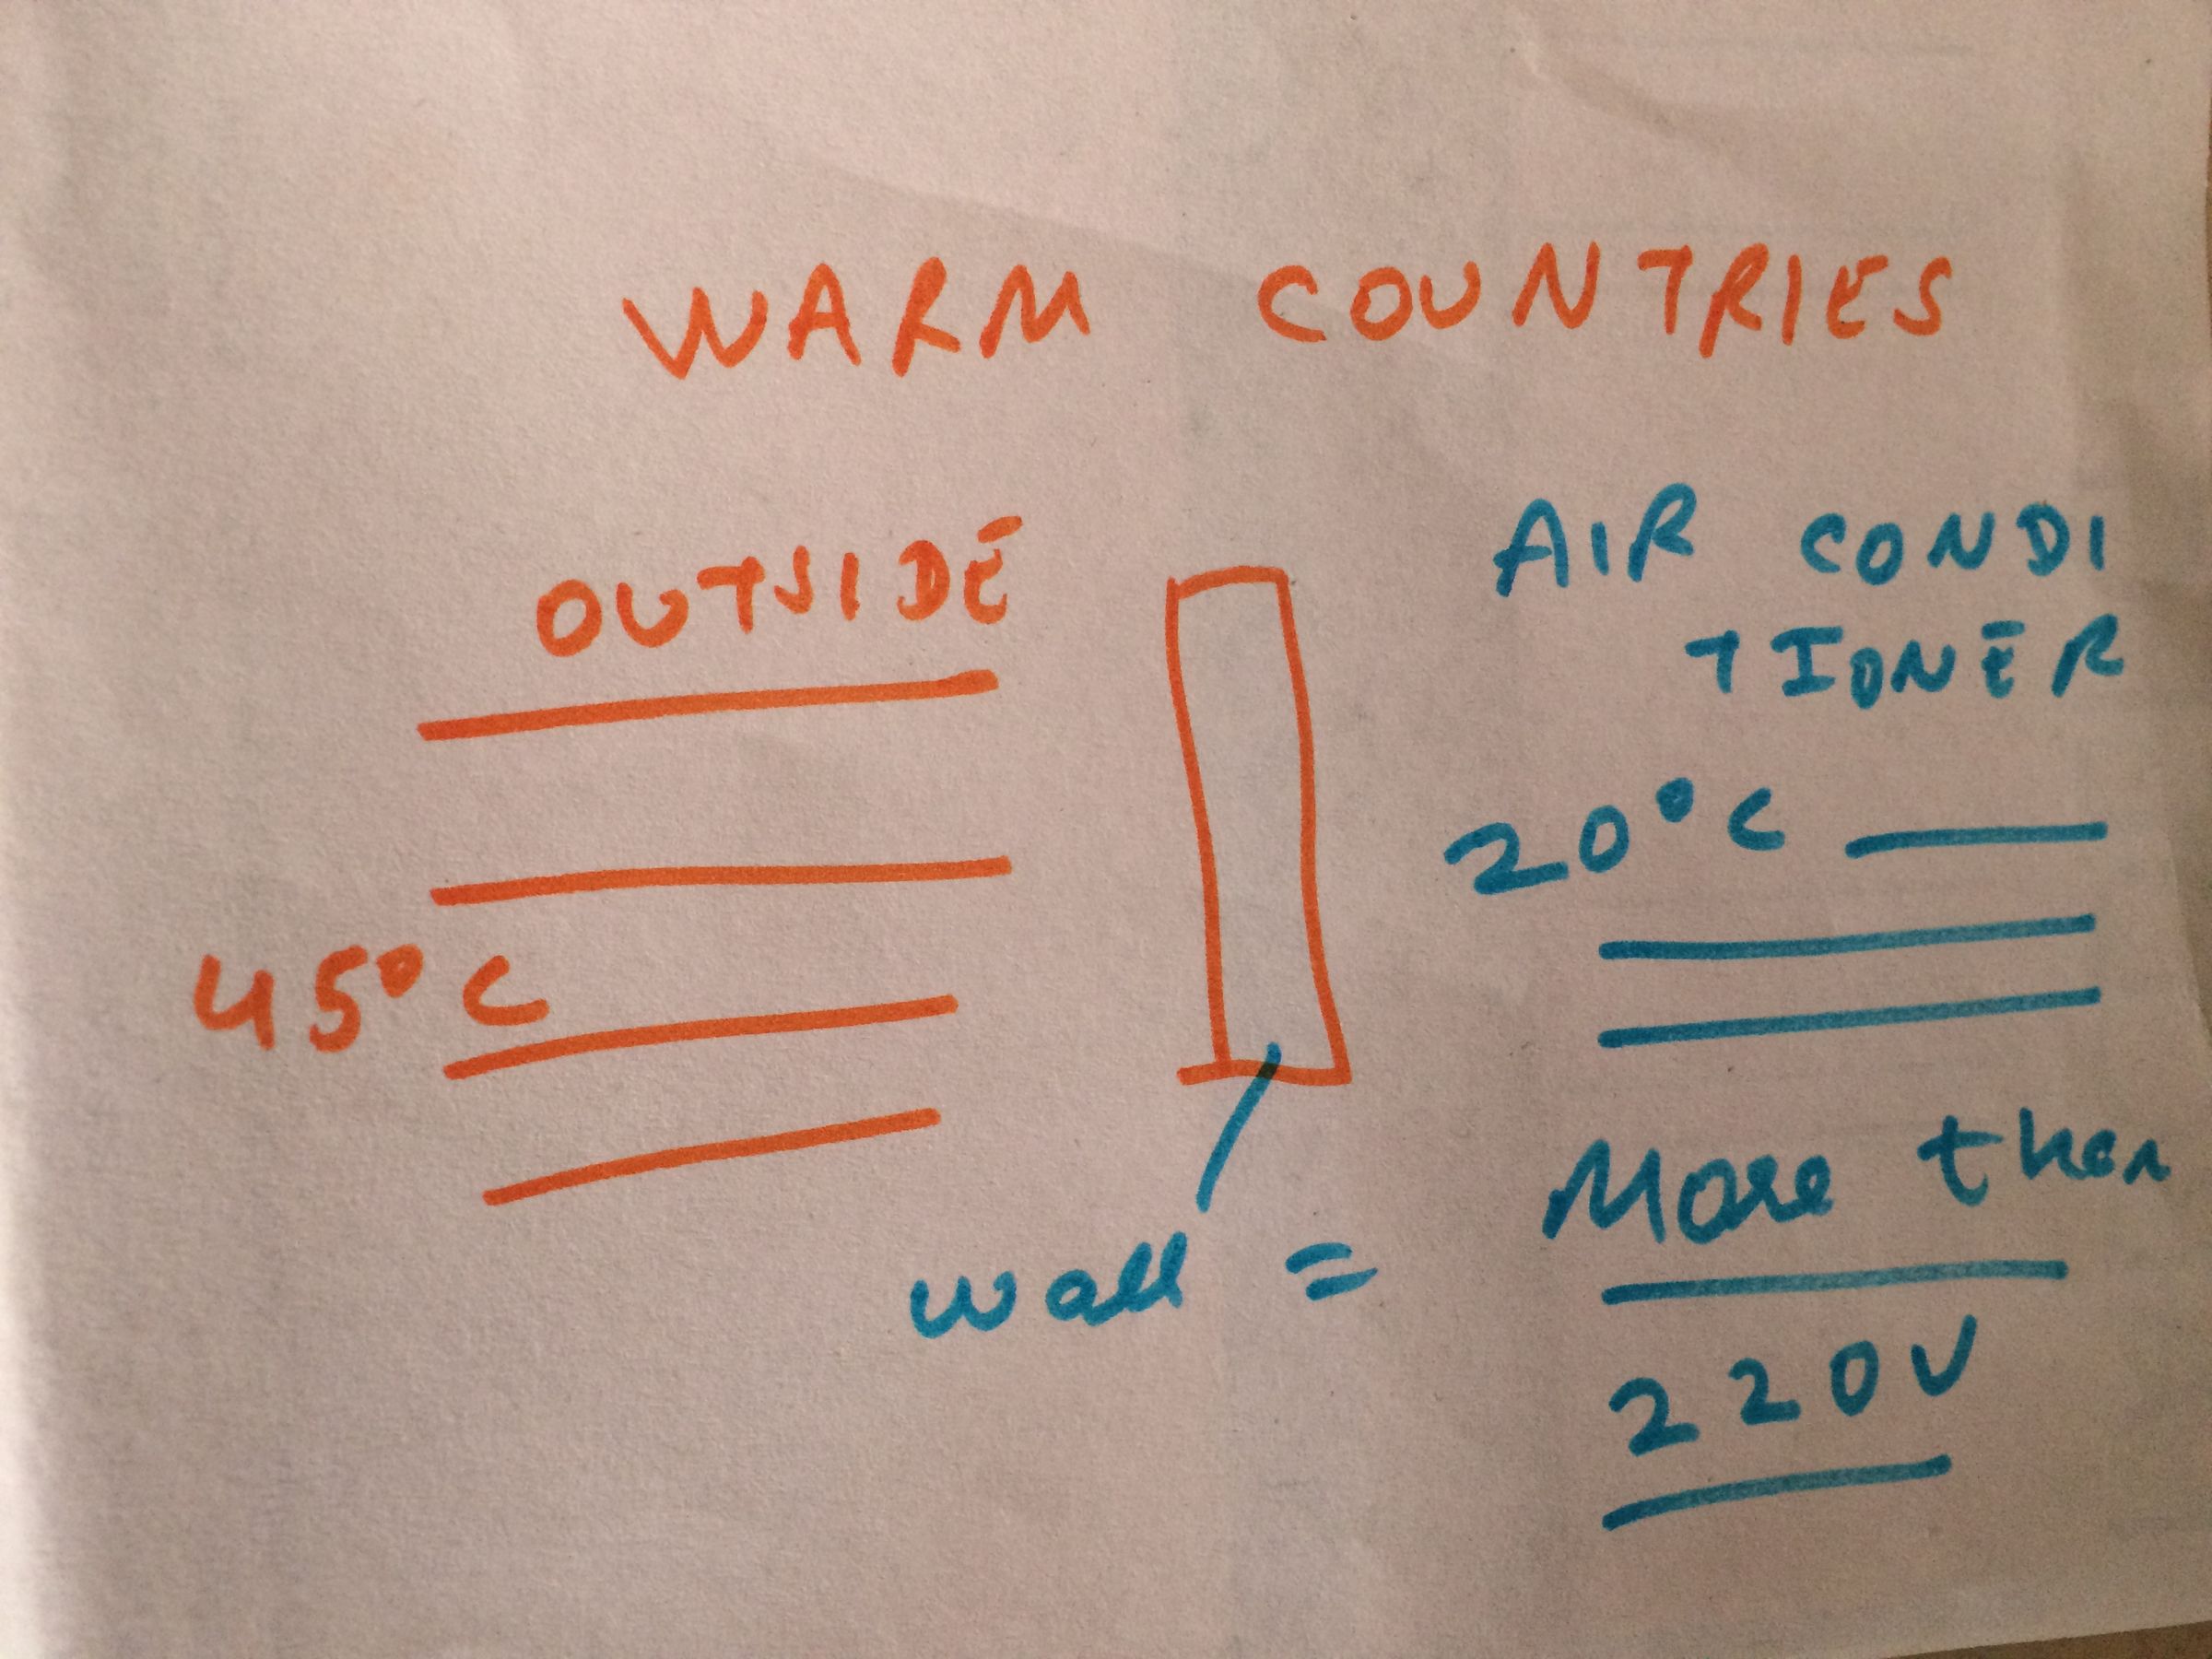 WARM COUNTRIES
OUTSIDE
45°C
AIR CONDI
TIONER
20°C
wall =
More then
220V